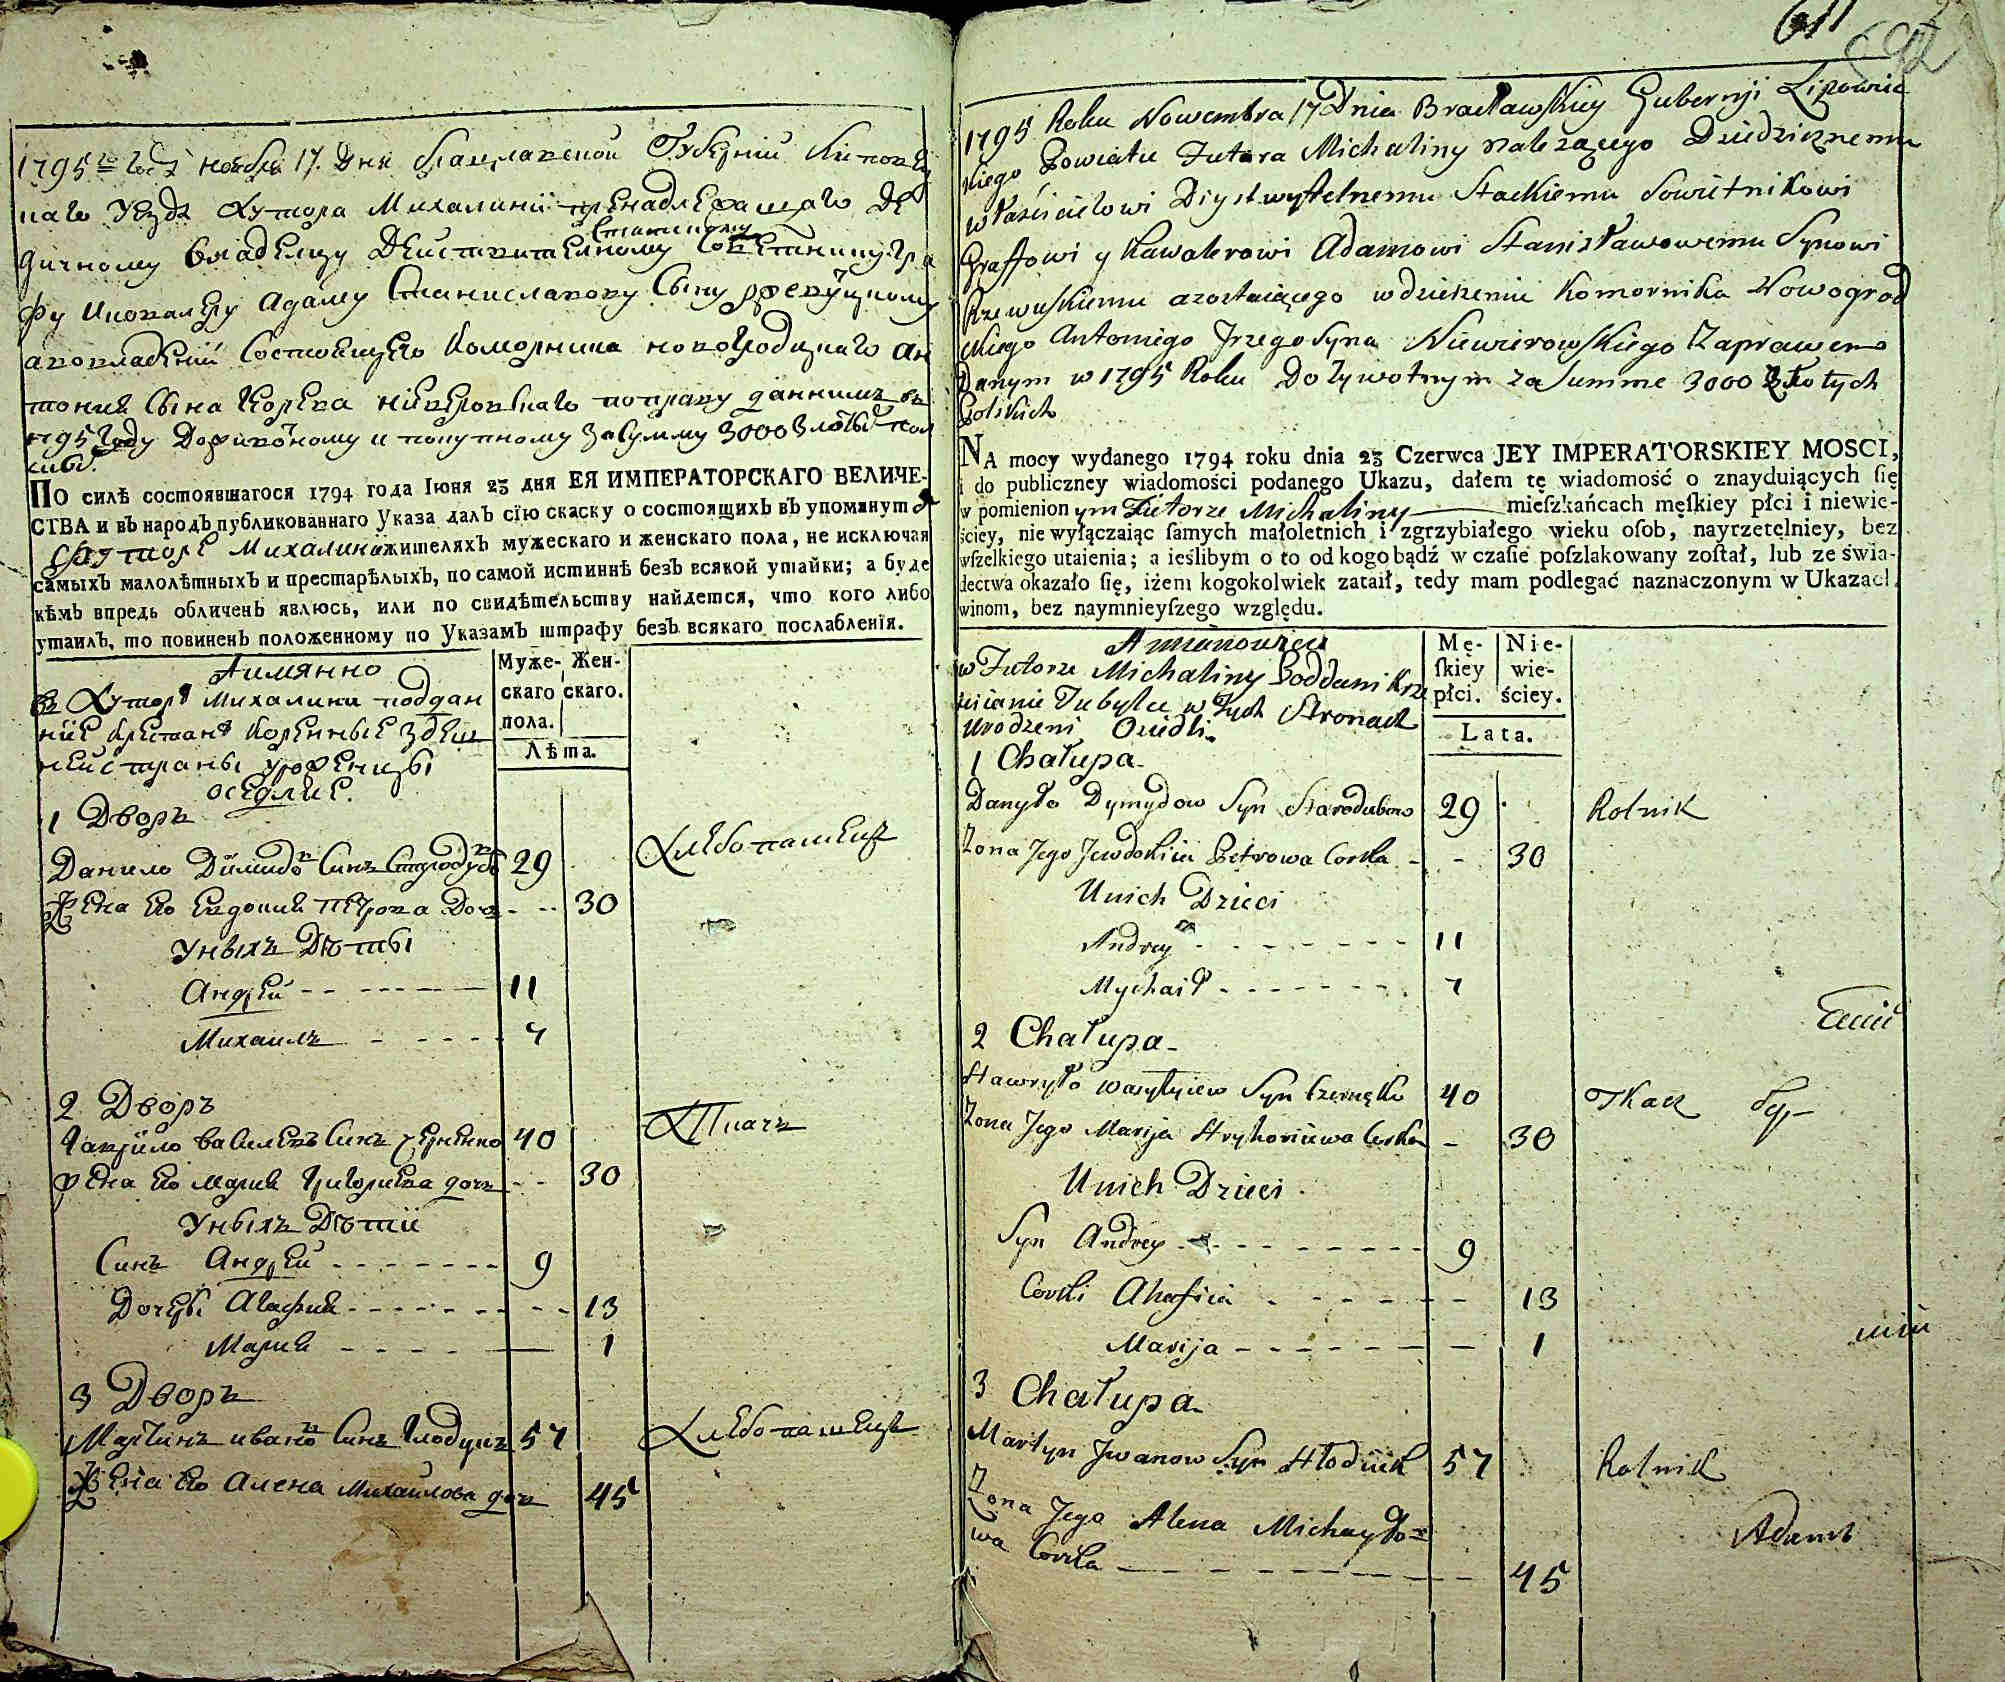 1795го года ноября 17 дня Брацлавской Губернии Липовец
каго уезда хутора Михалини принадлежащаго де
дичному владелцу Действителному Статскому Советнику Гра
фу и кавалеру Адаму Станиславову сыну Ржевускому
а во владении состоящего коморника новогродцкаго Ан
тония сына
1795 году и за сумму 3000 злотых пол
ских.
ПО силѣ состоявшагося 1794 года Іюня 23 дня ЕЯ ИМПЕРАТОРСКАГО ВЕЛИЧЕ-
СТВА и въ народъ публикованнаго Указа далъ сїю скаску о состоящихъ въ упомянутом
хуторе Михалини жителяхъ мужескаго и женскаго пола, не исключая
самыхъ малолѣтныхъ и престарѣлыхъ, по самой истиннѣ безъ всякой утайки; а буде
кѣмъ впредь обличенъ явлюсь, или по свидѣтельству найдется, что кого либо
утаилъ, то повиненъ положенному по Указамъ штрафу безъ всякаго послабленїя.
Аимянно
въ хуторе Михалини поддан
ние крестяне коренные здеш
ней страны уроженцы
оседлие.
Муже- Жен-
скаго скаго.
пола.
Лѣта.
1 Дворъ
Данило Димидовъ синъ Стародубъ 29 хлебопашецъ
Жена его Евдокия Петрова дочь 30
У них дети
Андрей 11
Михаилъ 7
2 Дворъ
Гаврило Василевъ синъ Черненко 40 Ткачъ
жена его Мария Григориева дочь 30
У них дети
Синъ Андрей 9
Дочери Агафия 13
Мария 1
3 Дворъ
Мартинъ Ивановъ синъ Глодукъ 57 хлебопашецъ
Жена его Алена Михайлова дочь 45
611
1795 Roku Nowembra 17 Dnia Bracławskiey Gubernji Lipowiec
kiego Powiatu Futora Michaliny należącego Dziedzicznemu
właścicielowi Dieystwytelnemu Statskiemu Sowietnikowi
Graffowi y Kawalerowi Adamowi Stanisławowemu Synowi
Rzewuskiemu a zostaiącego w dzierżeniu Komornika Nowogrod
skiego Antoniego Jrzego Syna Niewierowskiego Za prawem
Danym w 1795 Roku Dożywotnym za Summe 3000 Złotych
Polskich
NA mocy wydanego 1794 roku dnia 23 Czerwca JEY IMPERATORSKIEY MOSCI,
i do publiczney wiadomości podanego Ukazu, dałem tę wiadomość o znayduiących ſię
w pomienionym Futorze Michaliny mieſzkańcach męſkiey płci i niewie-
ściey, nie wyłączaiąc ſamych małoletnich i zgrzybiałego wieku oſob, nayrzetelniey, bez
wſzelkiego utaienia; a ieślibym o to od kogo bądź w czaſie poſzlakowany zoſtał, lub ze świa-
dectwa okazało ſię, iżem kogokolwiek zataił, tedy mam podlegać naznaczonym w Ukazach
winom, bez naymnieyſzego względu.
A mianowicie
w Futorze Michaliny Poddani Krze
ścianie Tubylce w tych Stronach
Urodzeni Osiedli.
Mę- Nie-
ſkiey wie-
płci. ściey.
Lata.
1 Chałupa
Danyło Dymydow Syn Starodubow 29 Rolnik
Żona Jego Jewdokiia Petrowa Corka 30
U nich Dzieci
Andrey 11
Mychaił 7
2 Chałupa
Hawryło Wasylyiew Syn Czernęko 40 Tkacz
Żona Jego Marija Hryhoriiewa Corka 30
U nich Dzieci
Syn Andrey 9
Corki Ahafiia 13
Marija 1
3 Chałupa
Martyn Jwanow Syn Hłoduk 57 Rolnik
Adams
Żona Jego Alena Michayło=
wa Corka 45